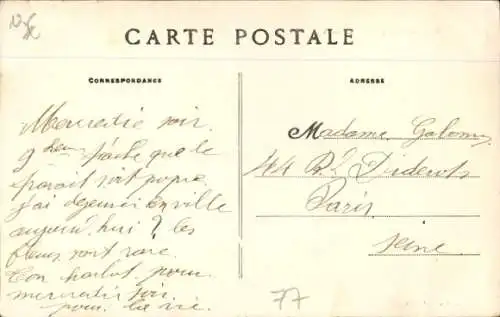 CARTE POSTALE
CORRESPONDANCE
Mercredie soir
9 heu tâche que le
parait soit propre
j'ai dejeuné en ville
aujourd'hui ? les
fleurs sont rare.
Ton charlot pour
mercredi soir
pour la vie.
ADRESSE
Madame
44 Bd Diderots
Paris
Seine
77